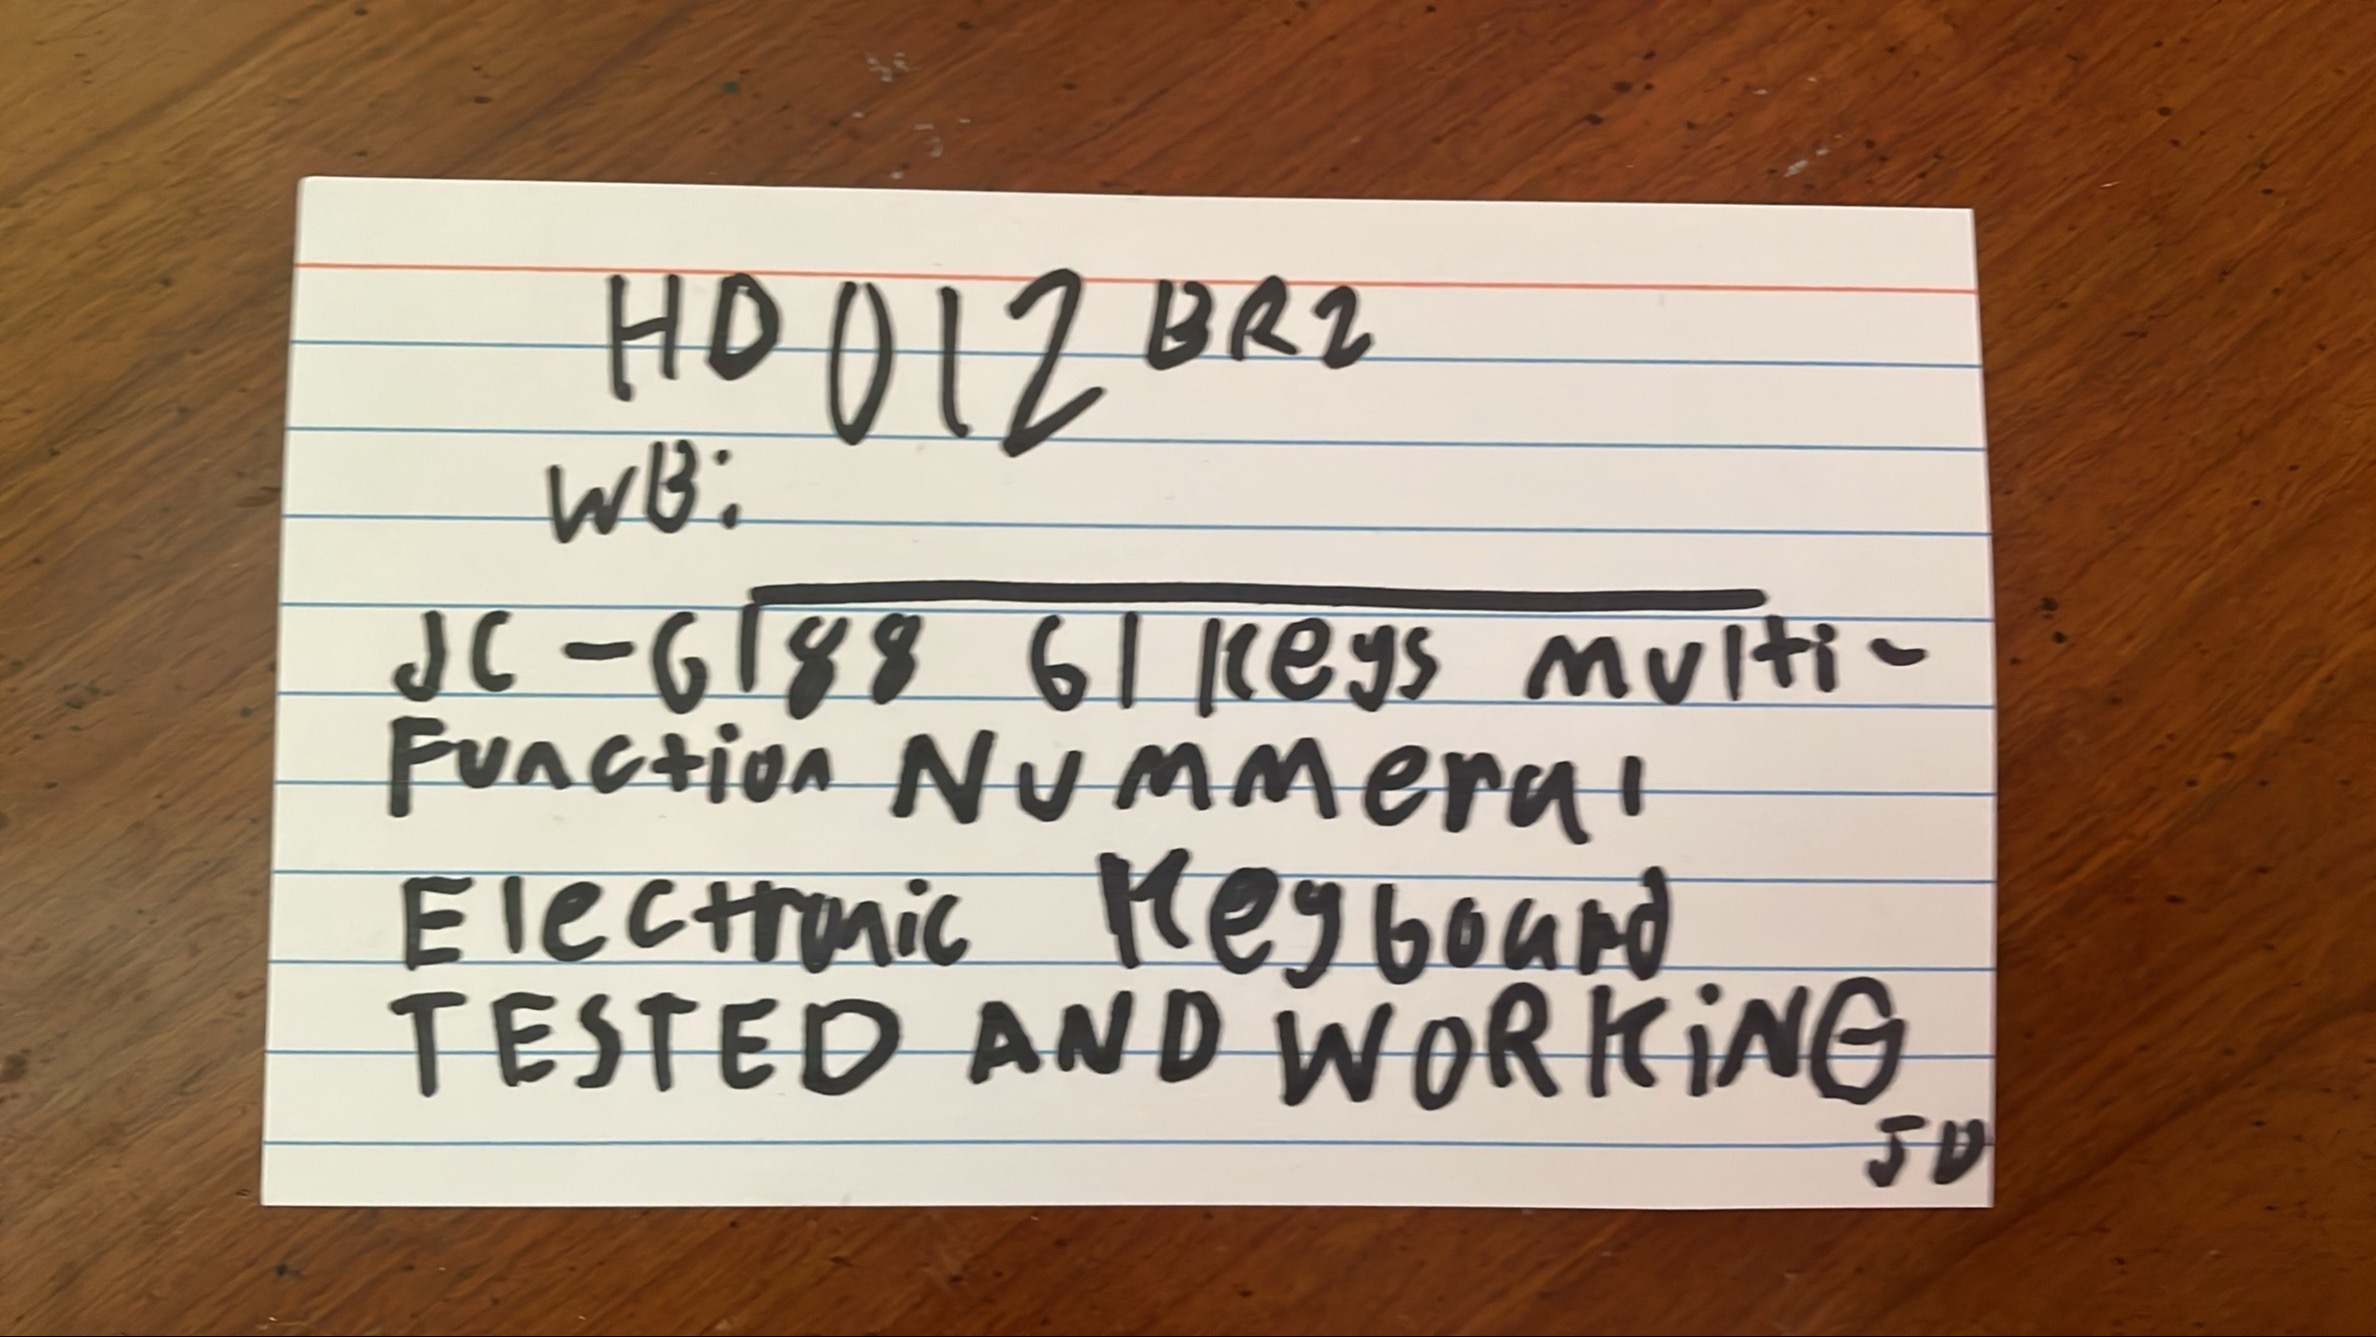 HD 012 BR2
WB:
JC-6188 61 Keys Multi-
Function Nummeral
Electronic Keyboard
TESTED AND WORKiNG
JD